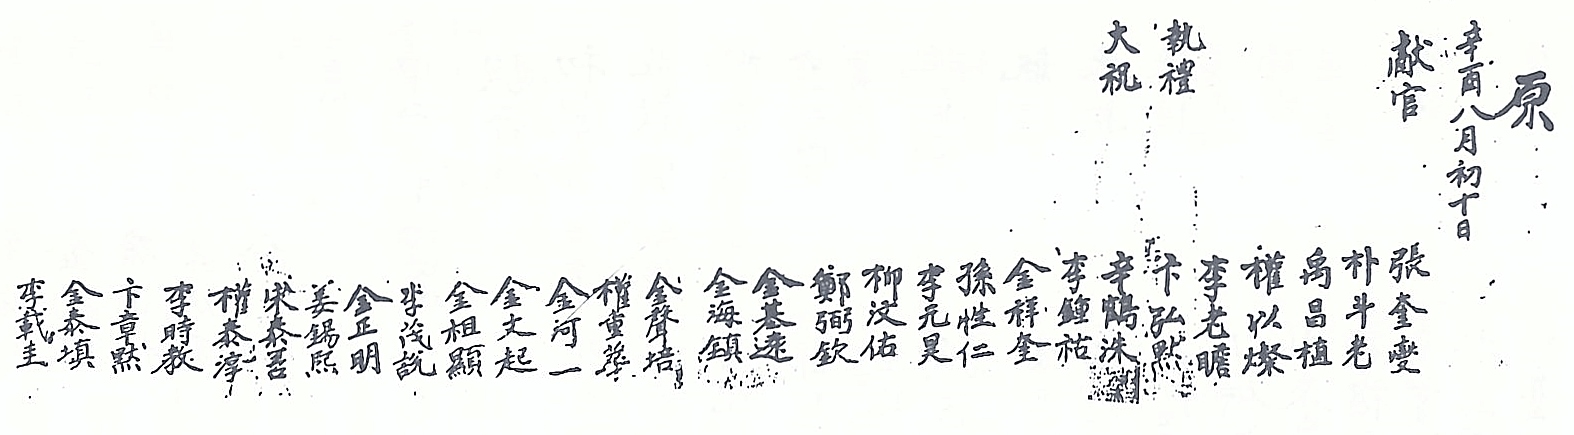 原
辛酉八月初十日
献官 張奎燮
朴斗老
禹昌植
權以燦
李老瞻
執禮 卞弘默
大祝 辛鶴洙
李鍾祜
金祥奎
孫性仁
李元昊
柳汶佑
鄭弼欽
金基遠
金海鎮
金聲培
權重
金河一
金文起
金祖顯
李茂說
金正明
姜錫熙
宋泰善
權泰淳
李時教
卞章默
金泰塡
李載圭